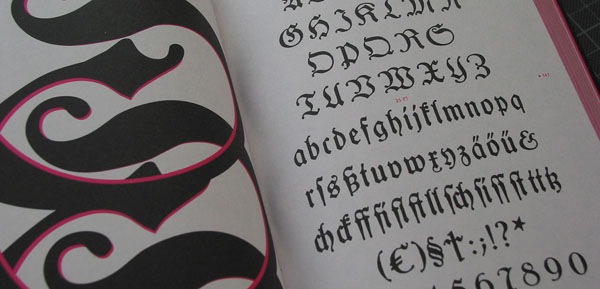 GHIJKLMN
OPQRS
TUVWXYZ
abcdefghijklmnopq
rſsßtuvwxyzäöü&
chckfffiflftllſchſiſſſttttz
(€)§†:;!?*
567890